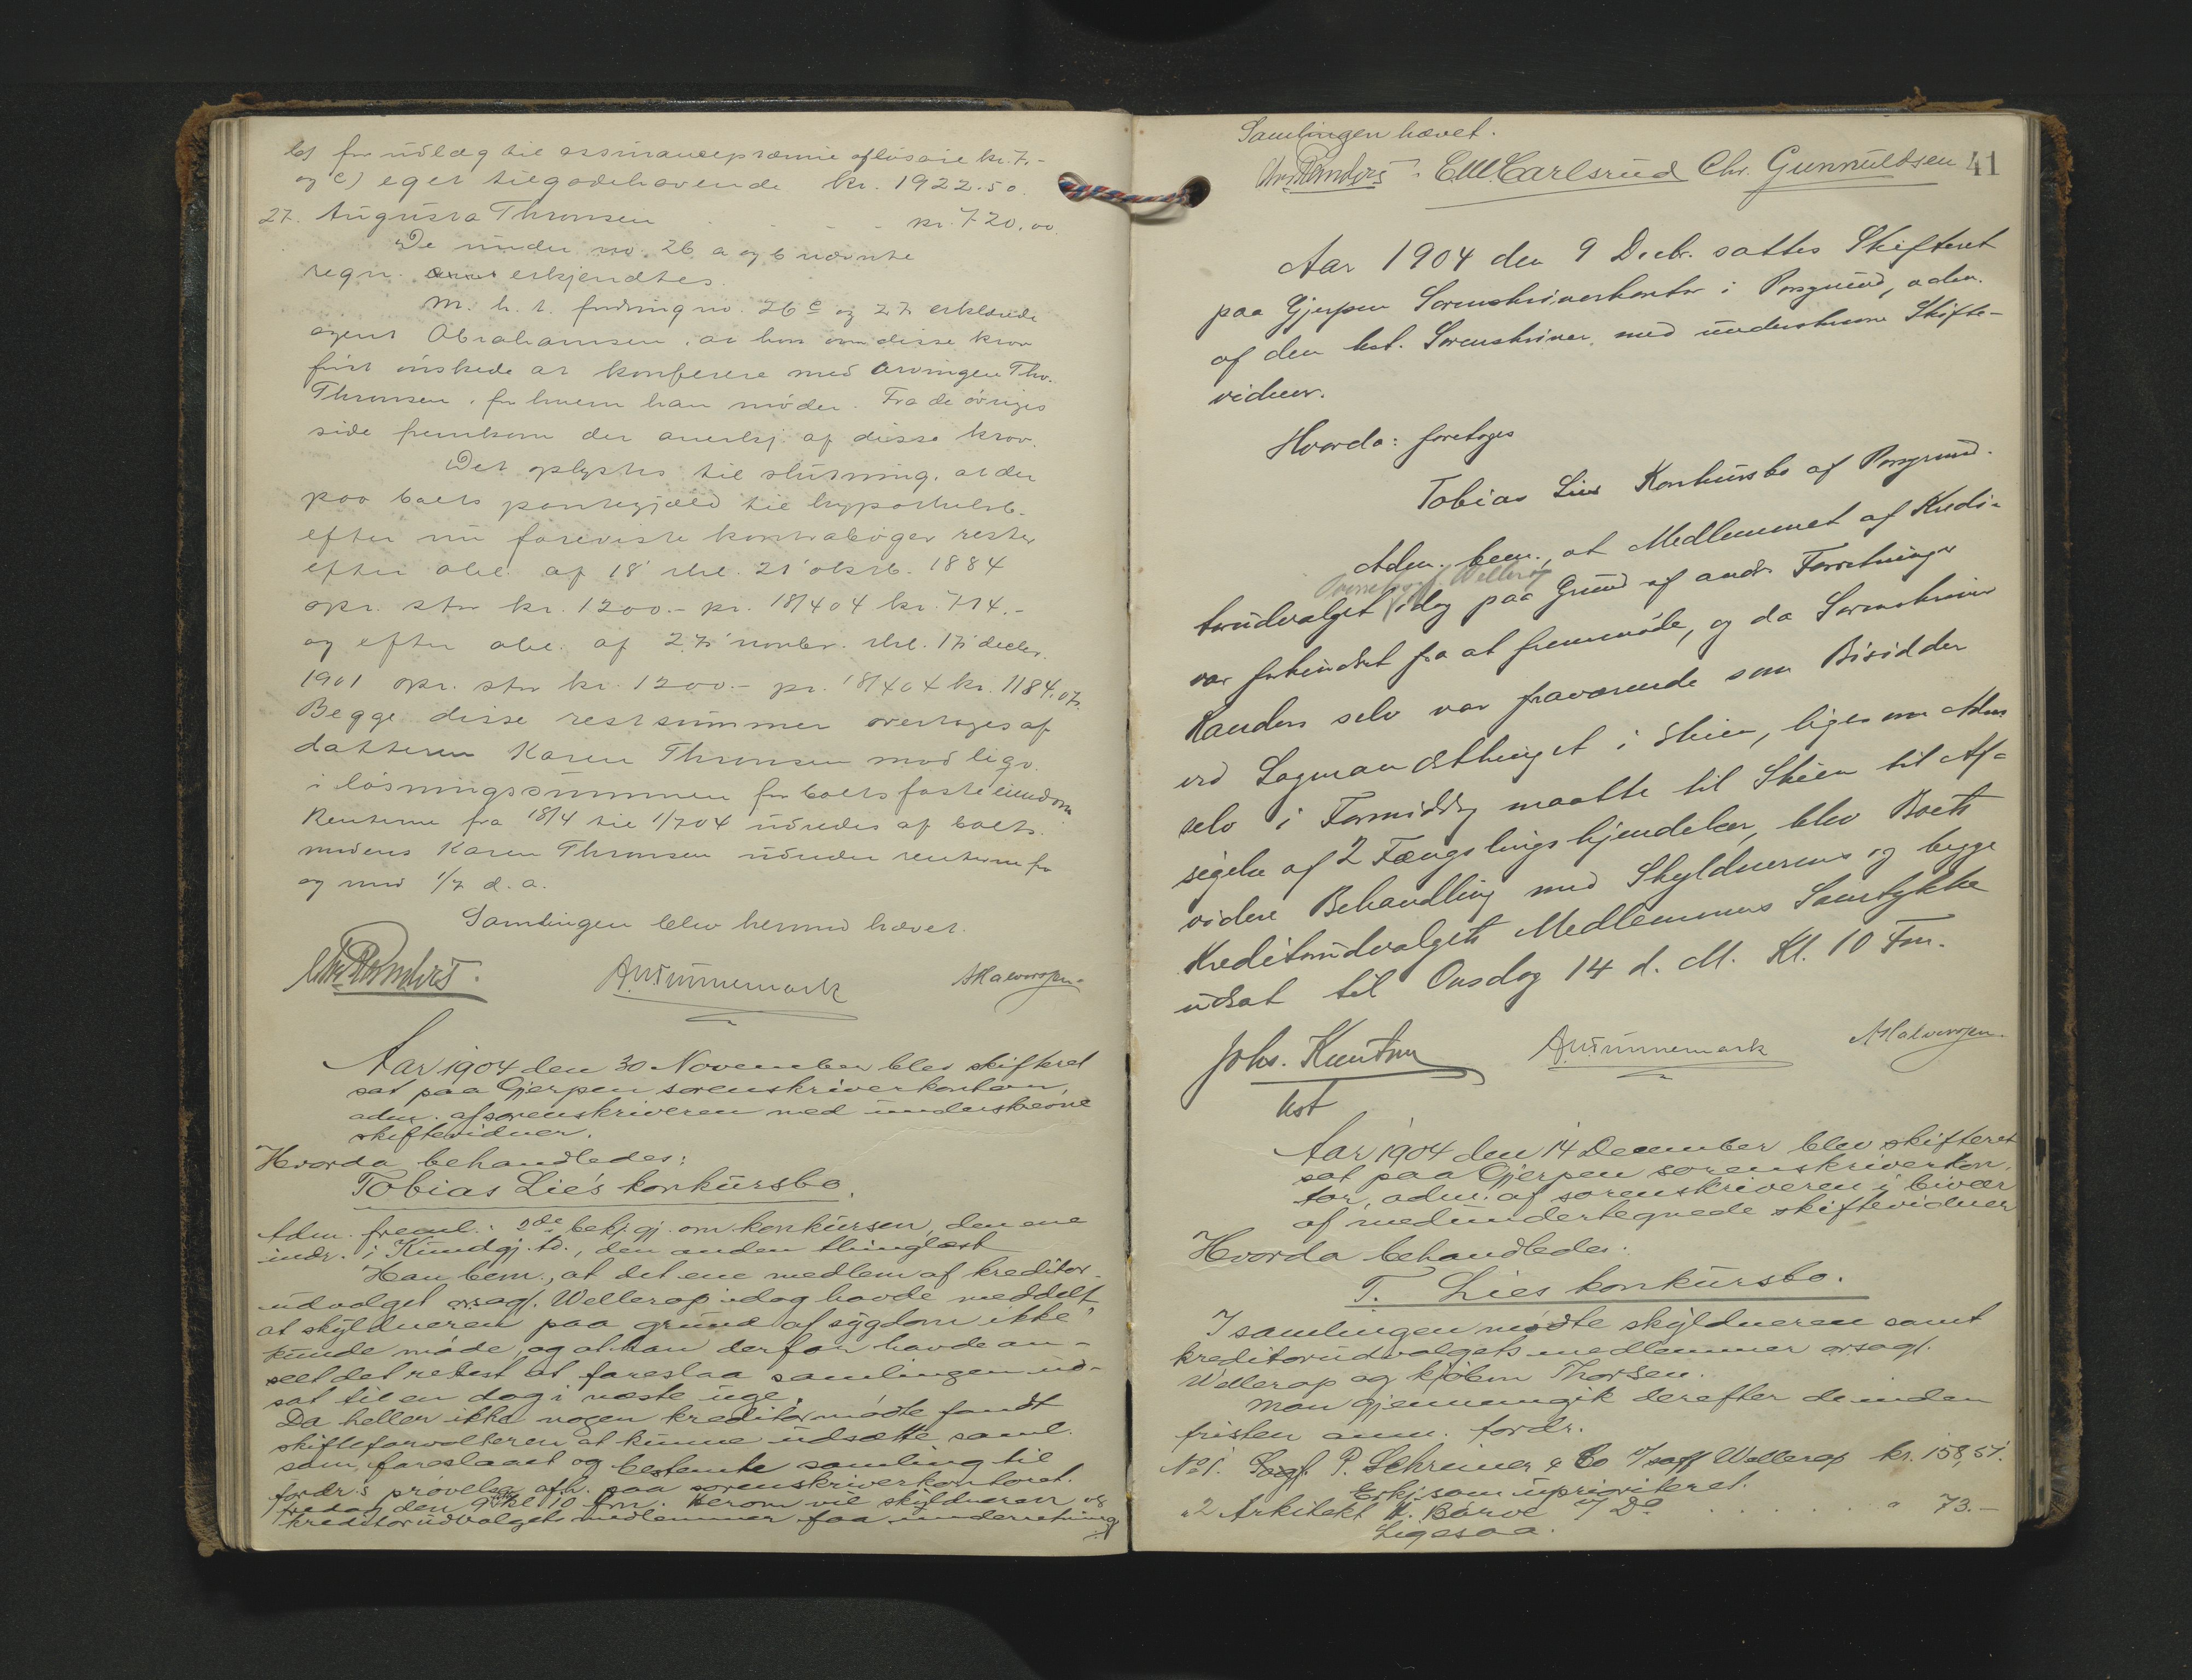 b) for udlæg til assurancepræmie afløsaie kr. 7.-
og c) eget tilgodehavende kr. 1922.50.
27. Augusta Thronsen - - - kr. 720.00.
De under no. 26 a og b nævnte
regn. erkjendtes.
M. h. t. fordring no. 26 c og 27 erklærede
agent Abrahamsen, at han om disse krav
först önskede at konferere med arvingen Thv.
Thronsen, for hvem han möder. Fra de övriges
side fremkom der anerkj. af disse krav.
Det oplystes til slutning, at der
paa boets pantegjæld til hyppothekb.
efter nu foreviste kontraböger rester
efter obl. af 18' thl. 21' oktb. 1884
opr. stor kr. 1200.- pr. 18/4 04 kr. 714.-
og efter obl. af 27' novbr. thl. 17' decbr.
1901 opr. stor kr. 1200.- pr. 18/4 04 kr. 1184.07.
Begge disse restsummer overtages af
datteren Karen Thronsen mod liqv.
i løsningssummen for boets faste eiendom
Renterne fra 18/4 til 1/7 04 udredes af boet,
medens Karen Thronsen udreder renterne fra
og med 1/7 d. a.
Samlingen blev hermed hævet.
Chr. Randers. A. W. Tinnemark AHalvorsen.
Aar 1904 den 30 November blev skifteret
sat paa Gjerpen sorenskriverkontor,
adm. af sorenskriveren med underskrevne
skiftevidner.
Hvorda behandledes:
Tobias Lie's konkursbo.
Adm. freml.: 2de bekj.gj. om konkursen, den ene
indr. i Kundgj. td., den anden thinglæst
Han bem., at det ene medlem af kreditor-
udvalget orsagf. Wellerop idag havde meddelt
at skyldneren paa grund af sygdom ikke
kunde møde, og at han derfor havde an-
seet det rettest at foreslaa samlingen ud-
sat til en dag i næste uge.
Da heller ikke nogen kreditor mødte fandt
skifteforvalteren at kunne udsætte saml.
som foreslaaet og bestemte samling til
fordr.s prøvelse afh. paa sorenskriverkontoret
fredag den 9de kl 10 fm. Herom vil skyldneren og
kreditorudvalgets medlemmer faa underretning
Samlingen hævet.
Chr. Randers. C. M. Carlsrud Chr. Gunnuldsen 41
Aar 1904 den 9 Decbr. sattes Skifteret
paa Gjerpen Sorenskriverkontor i Porsgrund, adm.
af den kst. Sorenskriver med underskrevne Skifte-
vidner.
Hvorda: foretoges
Tobias Lies Konkursbo af Porsgrund.
Adm. bem., at Medlemmet af Kredi-
Overretssagf. Wellerop
torudvalget idag paa Grund af andre Forretninger
var forhindret fra at fremmøde, og da Sorenskriver
Randers selv var fraværende som Bisidder
ved Lagmandsthinget i Skien, ligesom Adm.
selv i Formiddag maatte til Skien til Af-
sigelse af 2 Fængslingskjendelser, blev Boets
videre Behandling med Skyldnerens og begge
Kreditorudvalgets Medlemmers Samtykke
udsat til Onsdag 14 d. M. Kl. 10 Fm.
Johs. Knutsen A. W. Tinnemark AHalvorsen.
kst
Aar 1904 den 14 December blev skifteret
sat paa Gjerpen sorenskriverkon-
tor, adm. af sorenskriveren i bivær
af medundertegnede skiftevidner
Hvorda behandledes:
T. Lies konkursbo.
I samlingen mødte skyldneren samt
kreditorudvalgets medlemmer orsagf.
Wellerop og kjøbm Thorsen.
Man gjennemgik derefter de inden
fristen anm. fordr.
No 1. Sagf. P. Schreiner & Co v/ sagf Wellerop kr. 158,51.
Erkj. som uprioriteret.
" 2 Arkitekt H. Børve v/ Do . . . . . . " 73.-
Ligesaa.